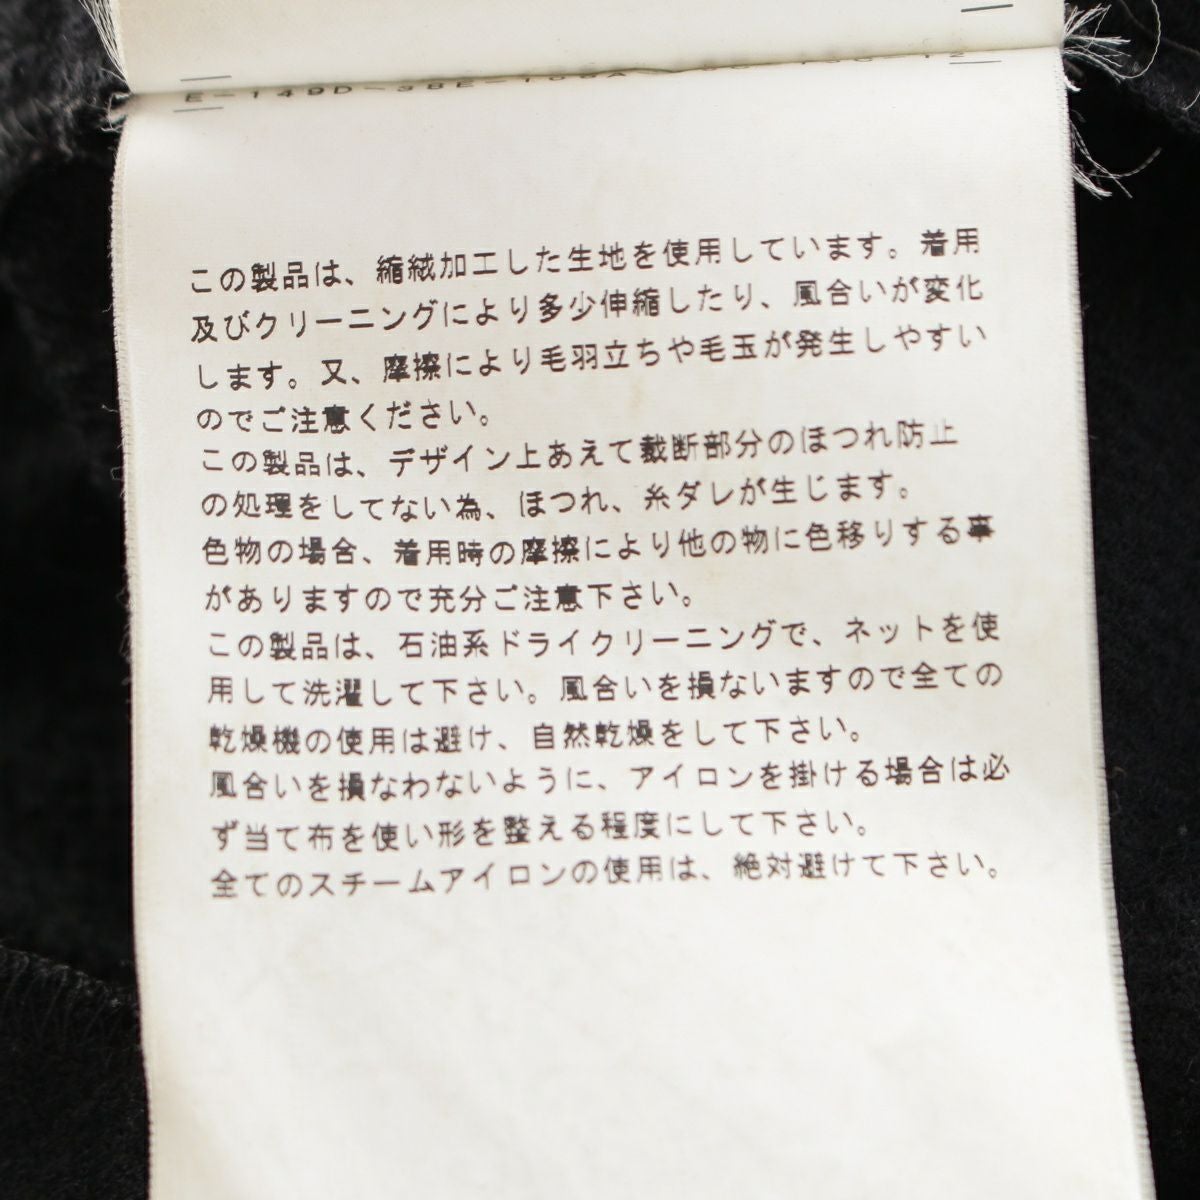 この製品は、縮絨加工した生地を使用しています。着用
及びクリーニングにより多少伸縮したり、風合いが変化
します。又、摩擦により毛羽立ちや毛玉が発生しやすい
のでご注意ください。
この製品は、デザイン上あえて裁断部分のほつれ防止
の処理をしてない為、ほつれ、糸ダレが生じます。
色物の場合、着用時の摩擦により他の物に色移りする事
がありますので充分ご注意下さい。
この製品は、石油系ドライクリーニングで、ネットを使
用して洗濯して下さい。風合いを損ないますので全ての
乾燥機の使用は避け、自然乾燥をして下さい。
風合いを損なわないように、アイロンを掛ける場合は必
ず当て布を使い形を整える程度にして下さい。
全てのスチームアイロンの使用は、絶対避けて下さい。